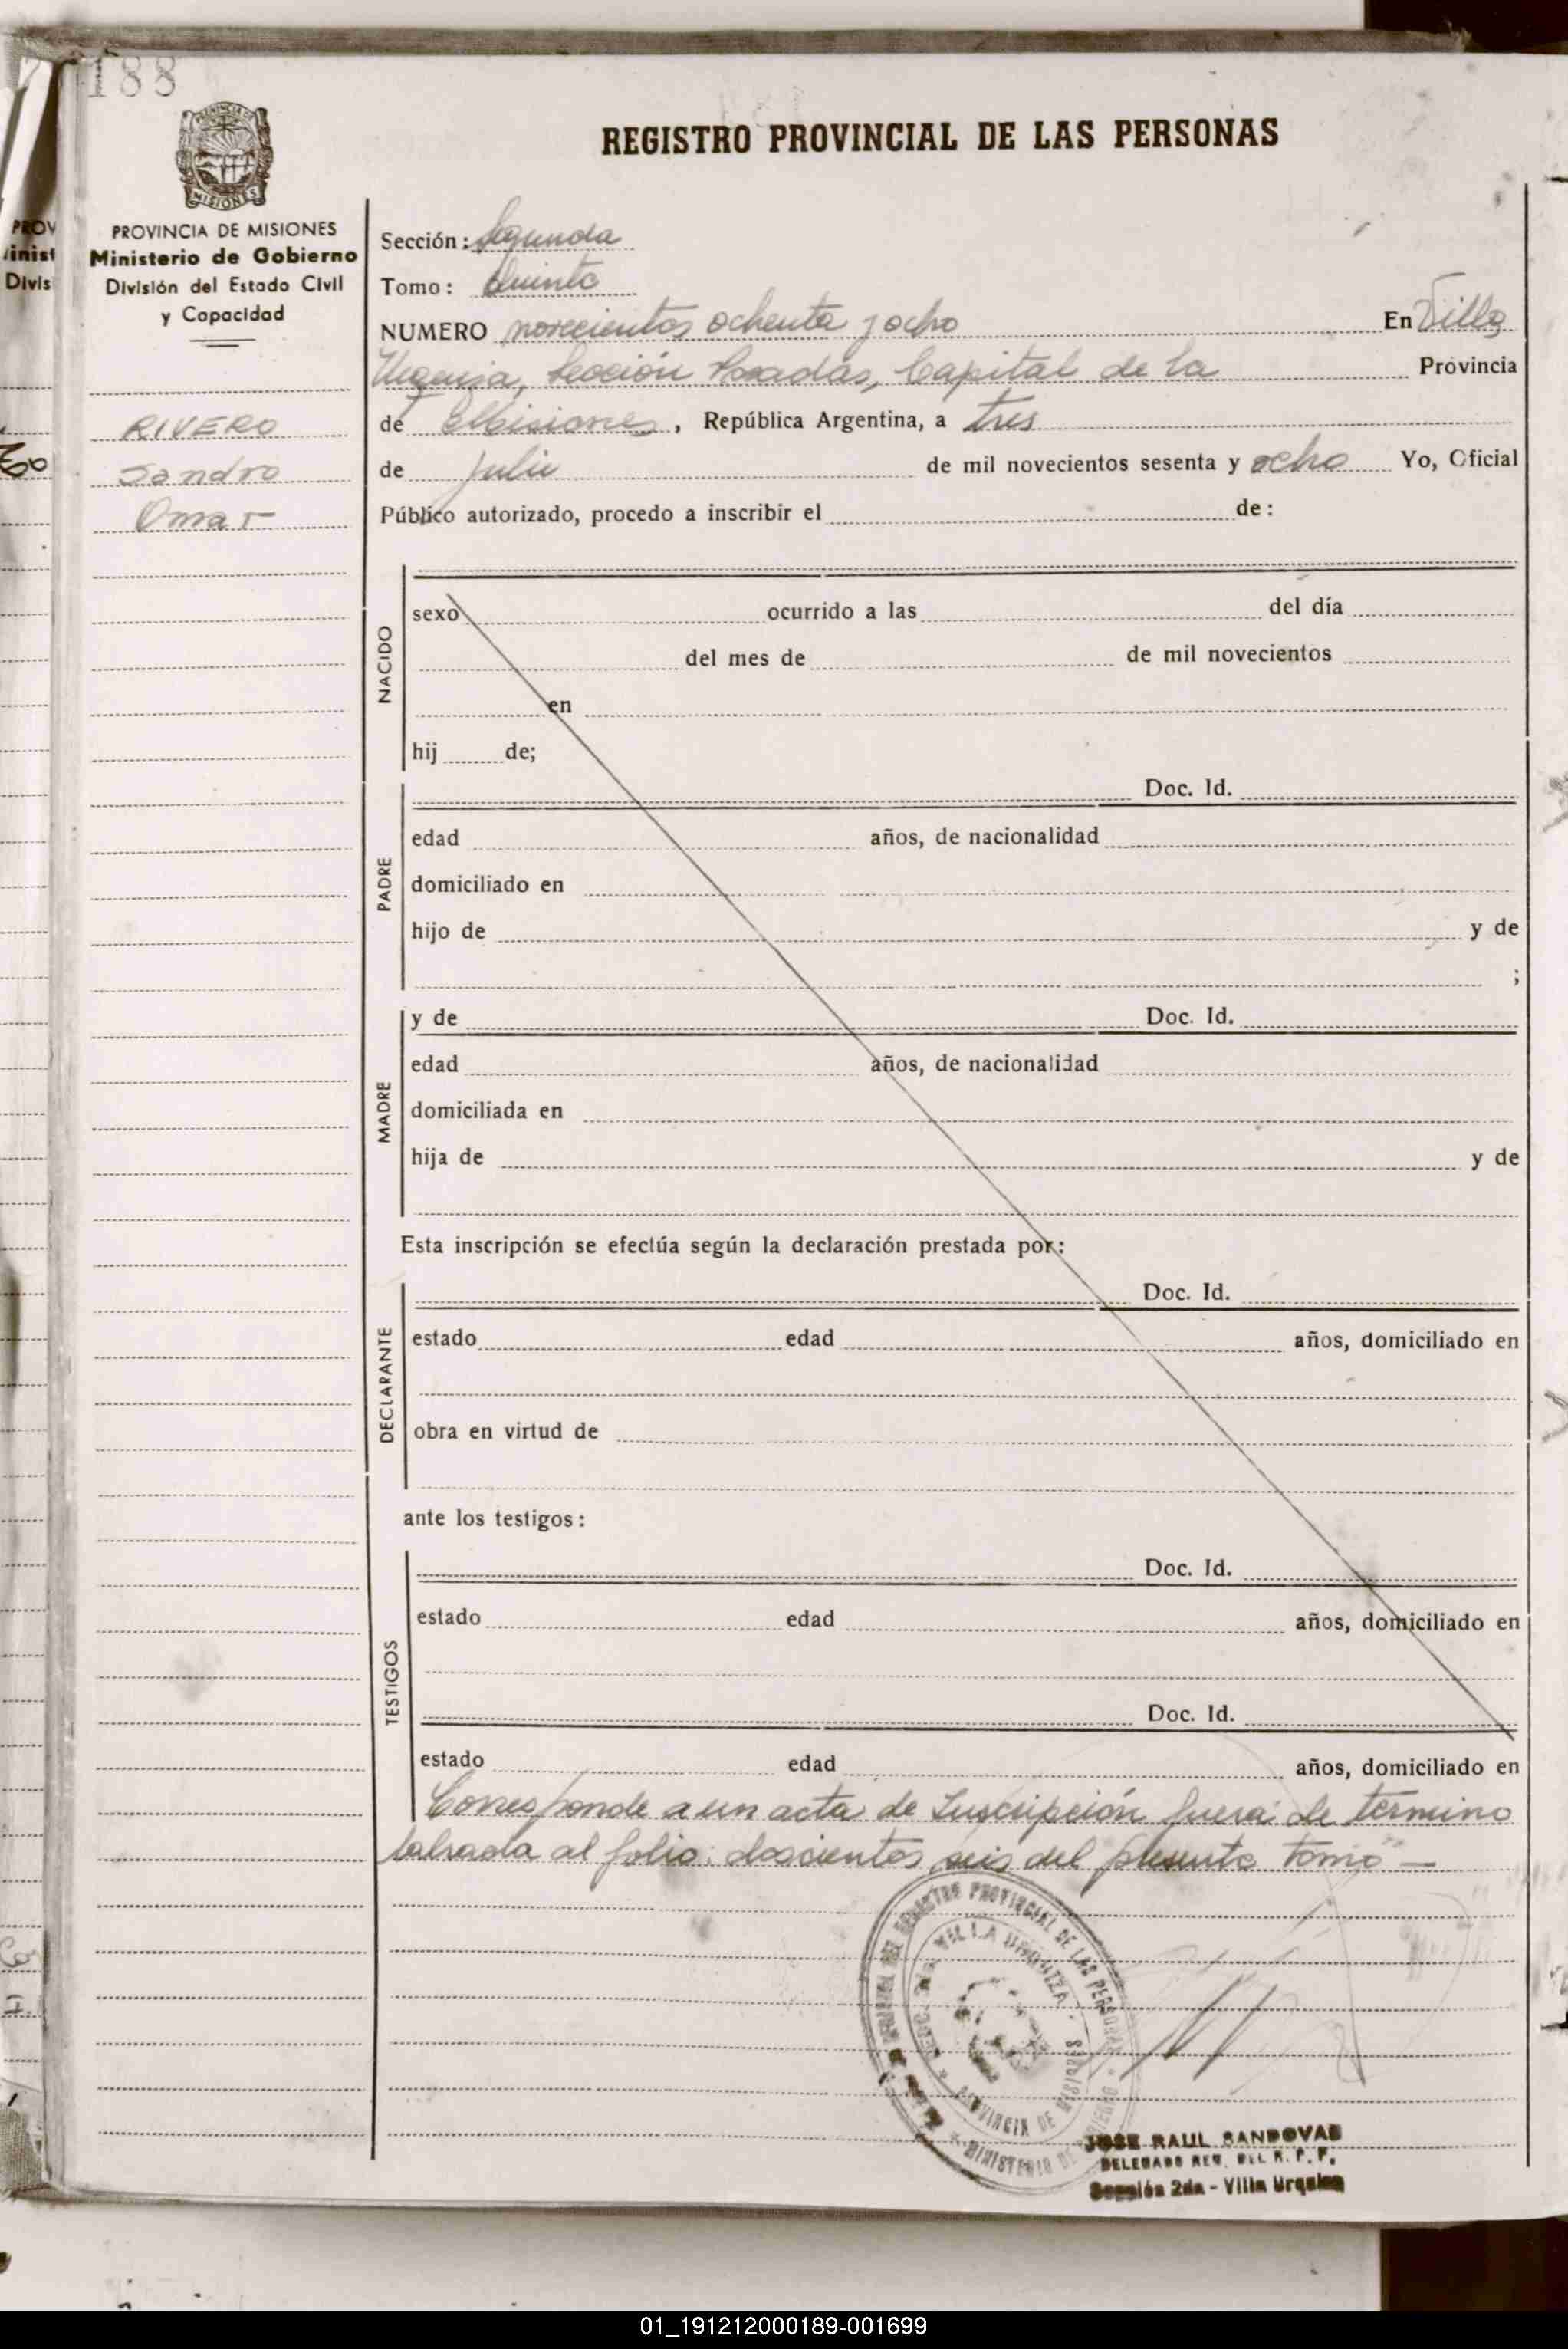 188
REGISTRO PROVINCIAL DE LAS PERSONAS
PROVINCIA DE MISIONES
Ministerio de Gobierno
División del Estado Civil
y Capacidad
RIVERO
Sandro
Omar
Sección: Segunda
Tomo: Quinto
NUMERO novecientos ochenta y ocho En Villa
Urquiza, Sección Posadas, Capital de la Provincia
de Misiones, República Argentina, a tres
de julio de mil novecientos sesenta y ocho Yo, Oficial
Público autorizado, procedo a inscribir el de:
NACIDO
sexo ocurrido a las del día
del mes de de mil novecientos
en
hij de;
PADRE
Doc. Id.
edad años, de nacionalidad
domiciliado en
hijo de y de
;
MADRE
y de Doc. Id.
edad años, de nacionalidad
domiciliada en
hija de y de
Esta inscripción se efectúa según la declaración prestada por:
DECLARANTE
Doc. Id.
estado edad años, domiciliado en
obra en virtud de
ante los testigos:
TESTIGOS
Doc. Id.
estado edad años, domiciliado en
Doc. Id.
estado edad años, domiciliado en
Corresponde a un acta de Inscripción fuera de término
labrada al folio: doscientos seis del presente tomo"—
REGISTRO PROVINCIAL DE LAS PERSONAS
VILLA URQUIZA
PROVINCIA DE MISIONES
MINISTERIO DE GOBIERNO
JOSE RAUL SANDOVAL
DELEGADO REG. DEL R. P. P.
Sección 2da - Villa Urquiza
01_191212000189-001699